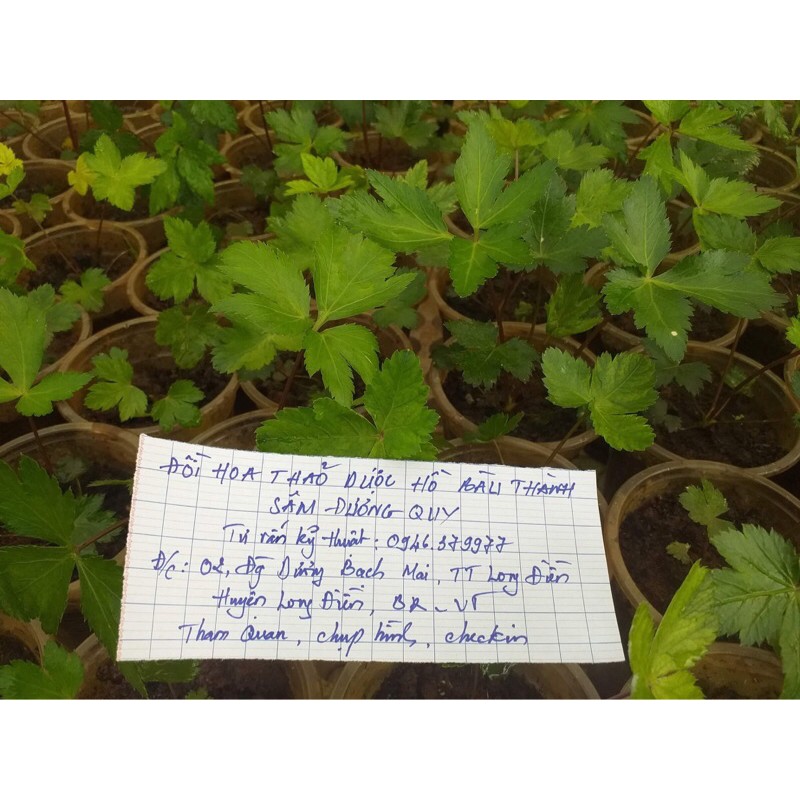 ĐỒI HOA THẢO DƯỢC HỒ BÀU THÀNH
SÂM ĐƯƠNG QUY
Tư vấn kỹ thuật: 0946.379977
Đ/c: 02, Đg Dương Bạch Mai, TT Long Điền
Huyện Long Điền, BR-VT
Tham Quan, chụp hình, checkin